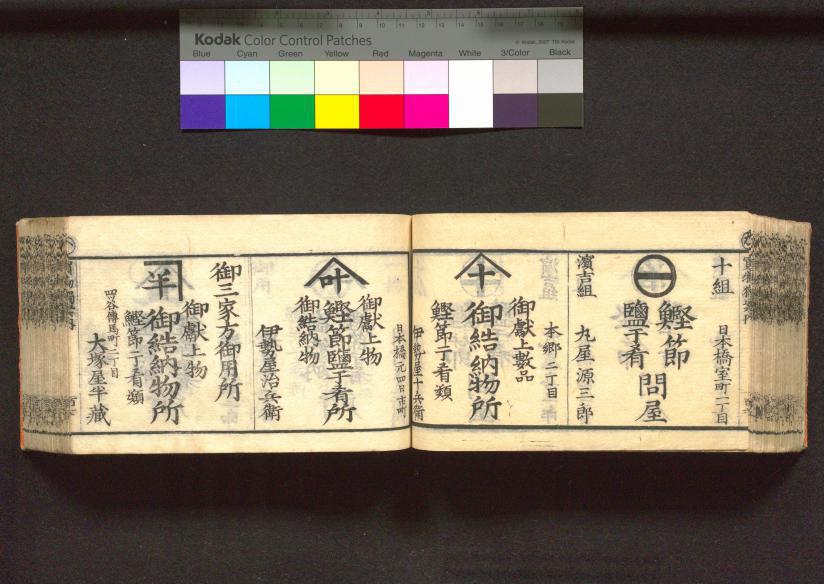 Kodak Color Control Patches
© Kodak, 2007 TM: Kodak
Blue Cyan Green Yellow Red Magenta White 3/Color Black
十組
日本橋室町二丁目
鰹節
鹽干肴
問屋
濵吉組
丸屋源三郎
本郷二丁目
御獻上數品
十
御結納物所
鰹節干肴類
伊勢屋十兵衛
日本橋元四日市町
御獻上物
叶
鰹節鹽干肴所
御結納物
伊勢屋治兵衛
御三家方御用所
御獻上物
半
御結納物所
鰹節干肴類
四谷傳馬町二丁目
大塚屋半藏